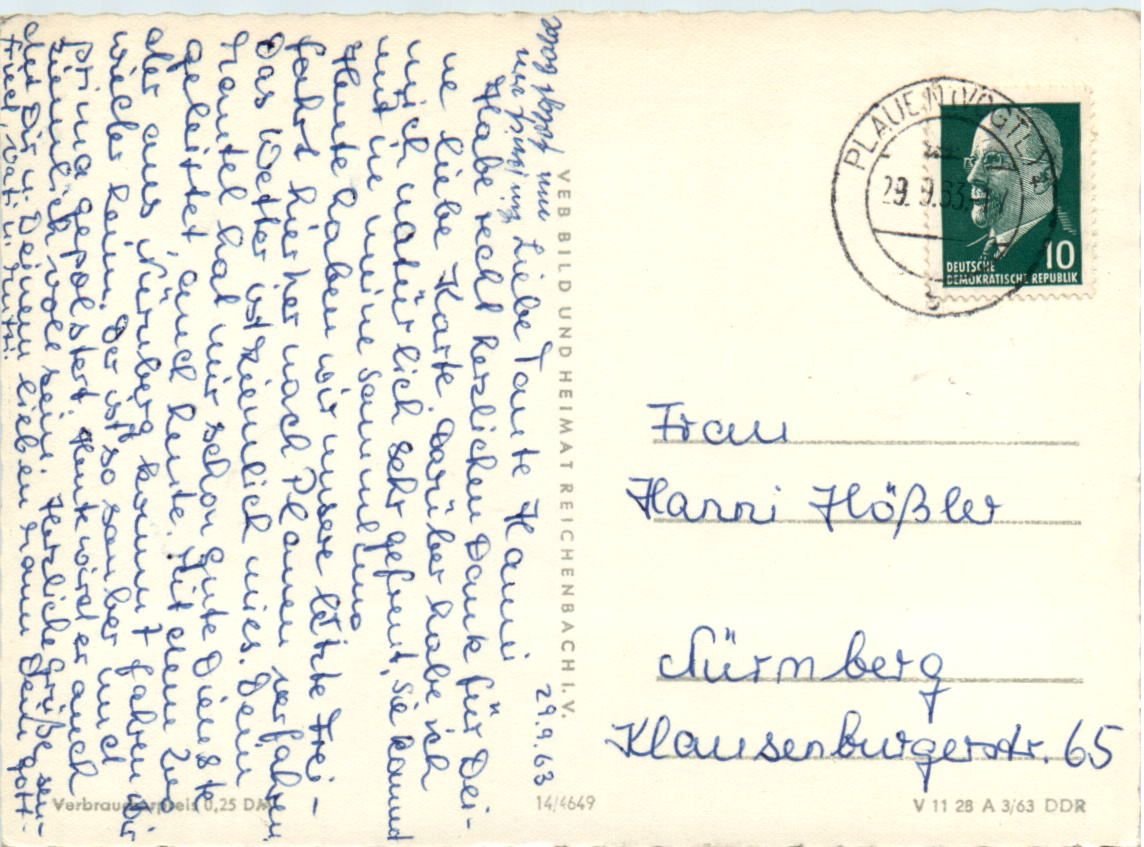 29.9.63
Liebe Tante Hanni
Habe recht herzlichen Dank für Dei-
ne liebe Karte. Darüber habe ich
mich natürlich sehr gefreut, sie kommt
mit in meine Sammlung
Heute haben wir unsere letzte Frei-
fahrt hier her nach Plauen verfahren
Das Wetter ist ziemlich mies. Dein
Mantel hat mir schon gute Dienste
geleistet auch heute. Mit dem Zug
der aus Nürnberg kommt fahren wir
wieder heim. Der ist so sauber und
prima gepolstert. Heute wird er auch
ziemlich voll sein. Herzliche Grüße sen-
det Dir u. Deinem lieben Mann Dein Gott-
fried, Vati u. Mutti.
VEB BILD UND HEIMAT REICHENBACH I. V.
Verbraucherpreis 0,25 DM
14/4649
V 11 28 A 3/63 DDR
PLAUEN (VOGTL)
29.9.63
b
10
DEUTSCHE
DEMOKRATISCHE REPUBLIK
Frau
Hanni Hößler
Nürnberg
Klausenburgerstr. 65